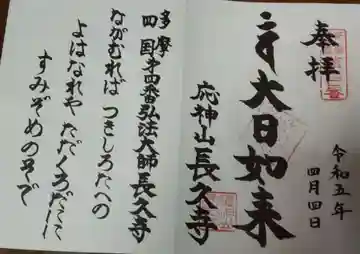 奉拝
大日如来
応神山長久寺
令和五年
四月四日
多摩
四国第四番弘法大師長久寺
ながむれば つきしろたへの
よはなれや ただくろだに
すみぞめのそで